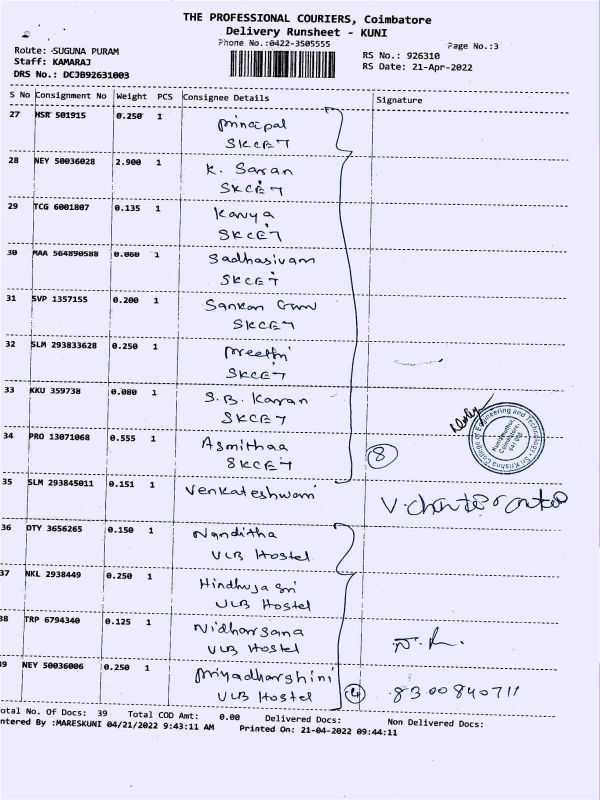 THE PROFESSIONAL COURIERS, Coimbatore
Delivery Runsheet - KUNI
Phone No.:0422-3505555
Page No.:3
Route: SUGUNA PURAM
Staff: KAMARAJ
DRS No.: DCJB92631003
RS No.: 926310
RS Date: 21-Apr-2022
S No Consignment No Weight PCS Consignee Details Signature
27 HSR 501915 0.250 1 Principal
SKCET
28 NEY 50036028 2.900 1 K. Saran
SKCET
29 TCG 6001807 0.135 1 Kavya
SKCET
30 MAA 564890588 0.060 1 Sadhasivam
SKCET
31 SVP 1357155 0.200 1 Sankan
SKCET
32 SLM 293833628 0.250 1 Preethi
SKCET
33 KKU 359738 0.080 1 S.B. Karan
SKCET
34 PRO 13071068 0.555 1 Asmithaa
SKCET 8
Sri Krishna College of Engineering and Technology
Kuniamuthur,
Coimbatore-
641 008
35 SLM 293845011 0.151 1 Venkateshwari
36 DTY 3656265 0.150 1 Nanditha
VLB Hostel
37 NKL 2938449 0.250 1 Hindhuja Sri
VLB Hostel
38 TRP 6794340 0.125 1 Nidharsana
VLB Hostel
39 NEY 50036006 0.250 1 Priyadharshini
VLB Hostel 4 8300840711
otal No. Of Docs: 39 Total COD Amt: 0.00 Delivered Docs: Non Delivered Docs:
ntered By :MARESKUNI 04/21/2022 9:43:11 AM Printed On: 21-04-2022 09:44:11